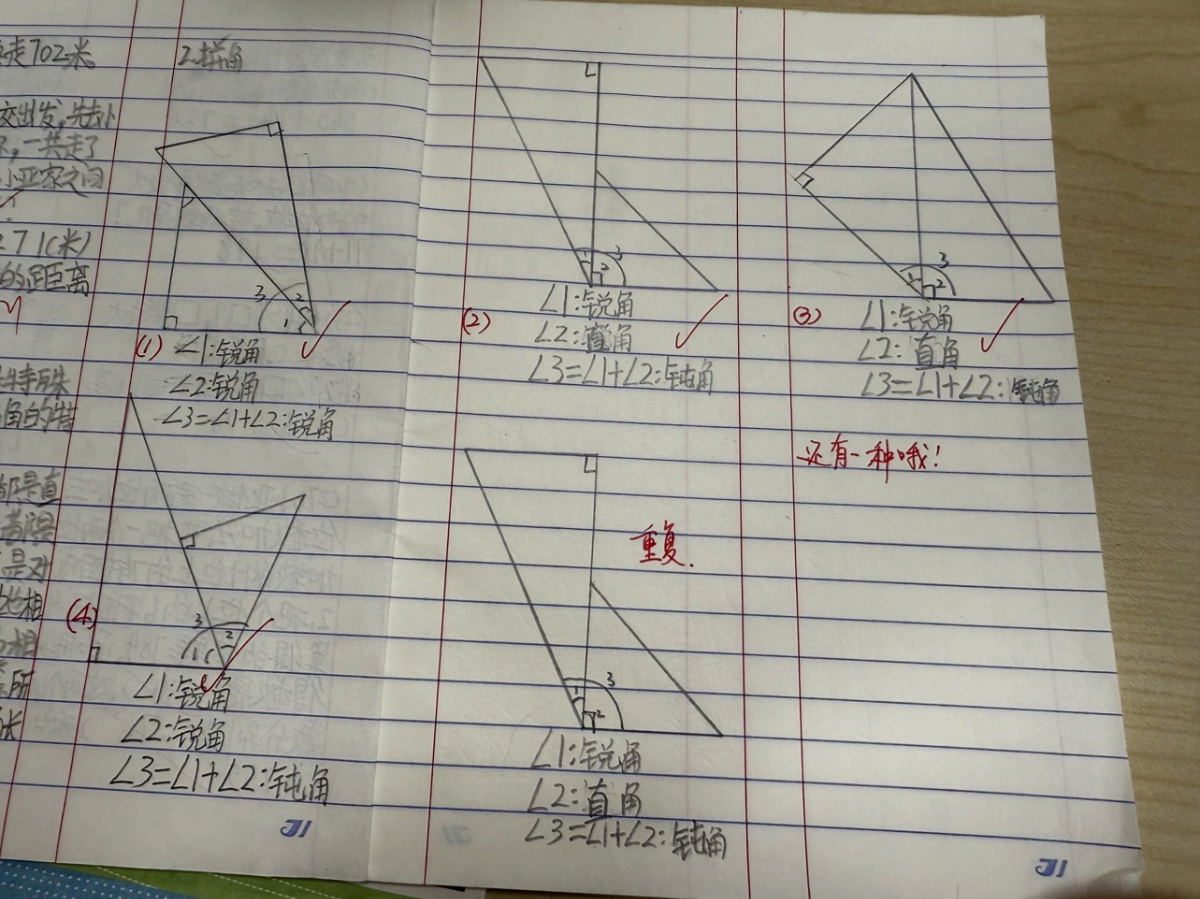 走702米。
交出发,先去小
一共走了
小亚家之间
271(米)
的距离
特殊
角的特
都是直
是对
地相
相
所
2.拼角
(1) ∠1:锐角
∠2:锐角
∠3=∠1+∠2:锐角
3
2
1
(4)
3
2
1
∠1:锐角
∠2:锐角
∠3=∠1+∠2:钝角
1
2
3
(2) ∠1:锐角
∠2:直角
∠3=∠1+∠2:钝角
重复.
1
2
3
∠1:锐角
∠2:直角
∠3=∠1+∠2:钝角
1
2
3
(3) ∠1:锐角
∠2:直角
∠3=∠1+∠2:钝角
还有一种哦!